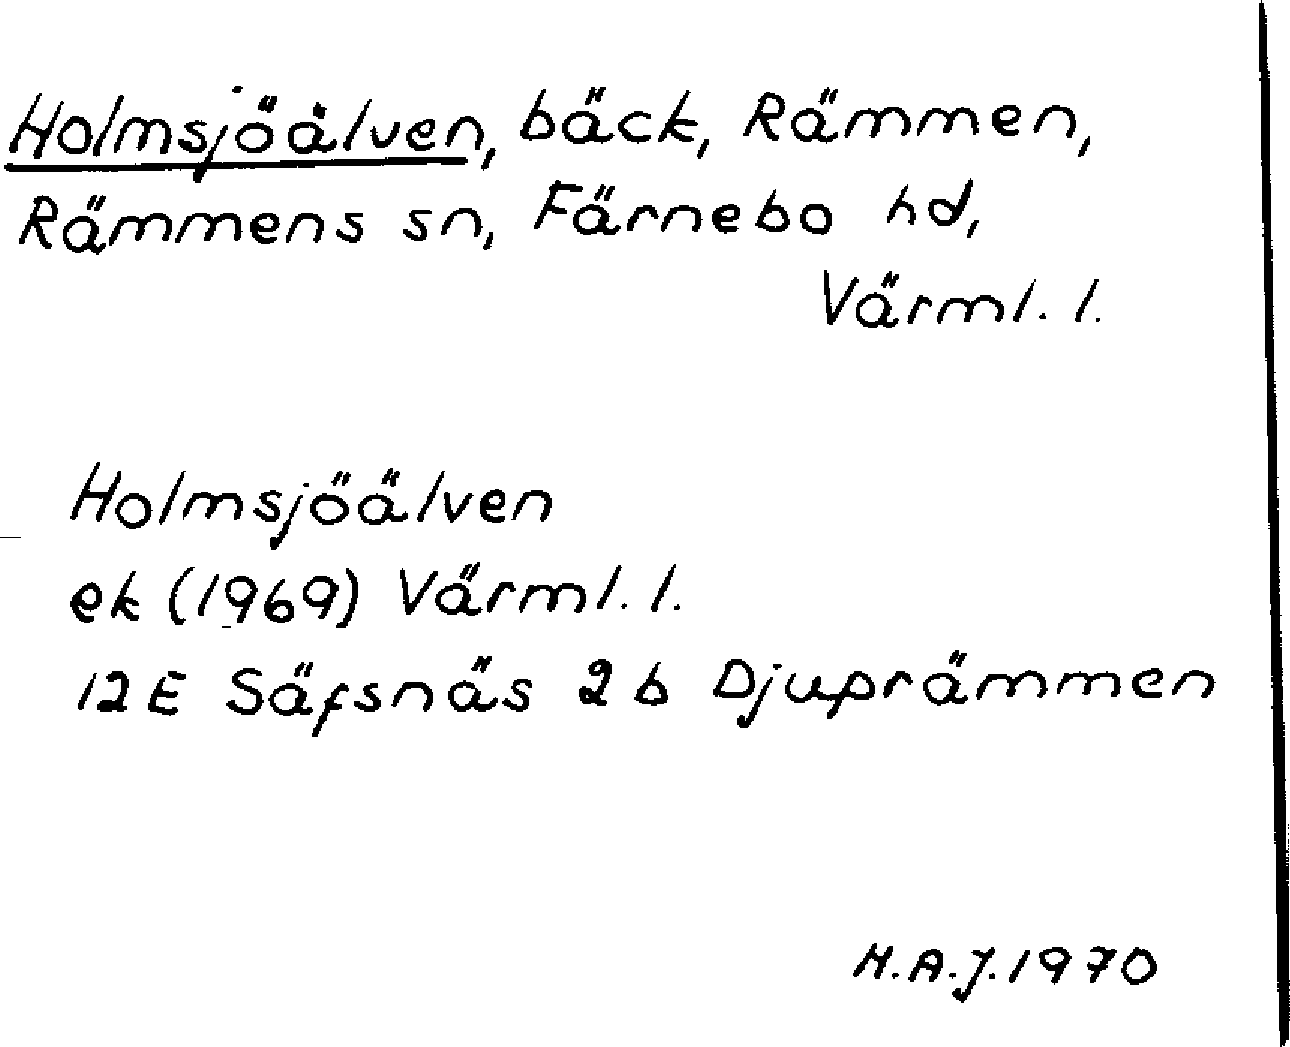 Holmsjöälven, bäck, Rämmen,
Rämmens sn, Färnebo hd,
Värml. l.
Holmsjöälven
ek (1969) Värml. l.
12E Säfsnäs 2b Djuprämmen
H.A.J. 1970